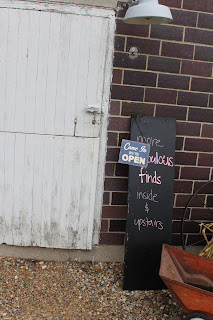 more
Come In
WE'RE
OPEN
bulous
finds
inside
&
upstairs